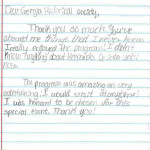 Dear Georgia Historical society,
Thank you so much. You've
showed me things that I never knew.
I really enjoyed the program. I didn't
know anything about
now.
The program was amazing an very
entertaining. I would visit
I was honored to be chosen for this
special event. Thank you!